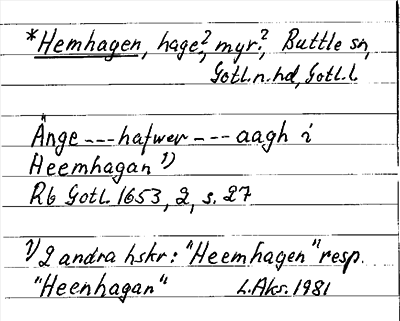 *Hemhagen, hage?, myr?, Buttle sn,
Gotl.n.hd, Gotl.l.
Änge --- hafwer --- aagh i
Heemhagan 1)
Rb Gotl. 1653, 2, s. 27
1) 2 andra hskr: "Heemhagen" resp.
"Heenhagan" L.Aks. 1981